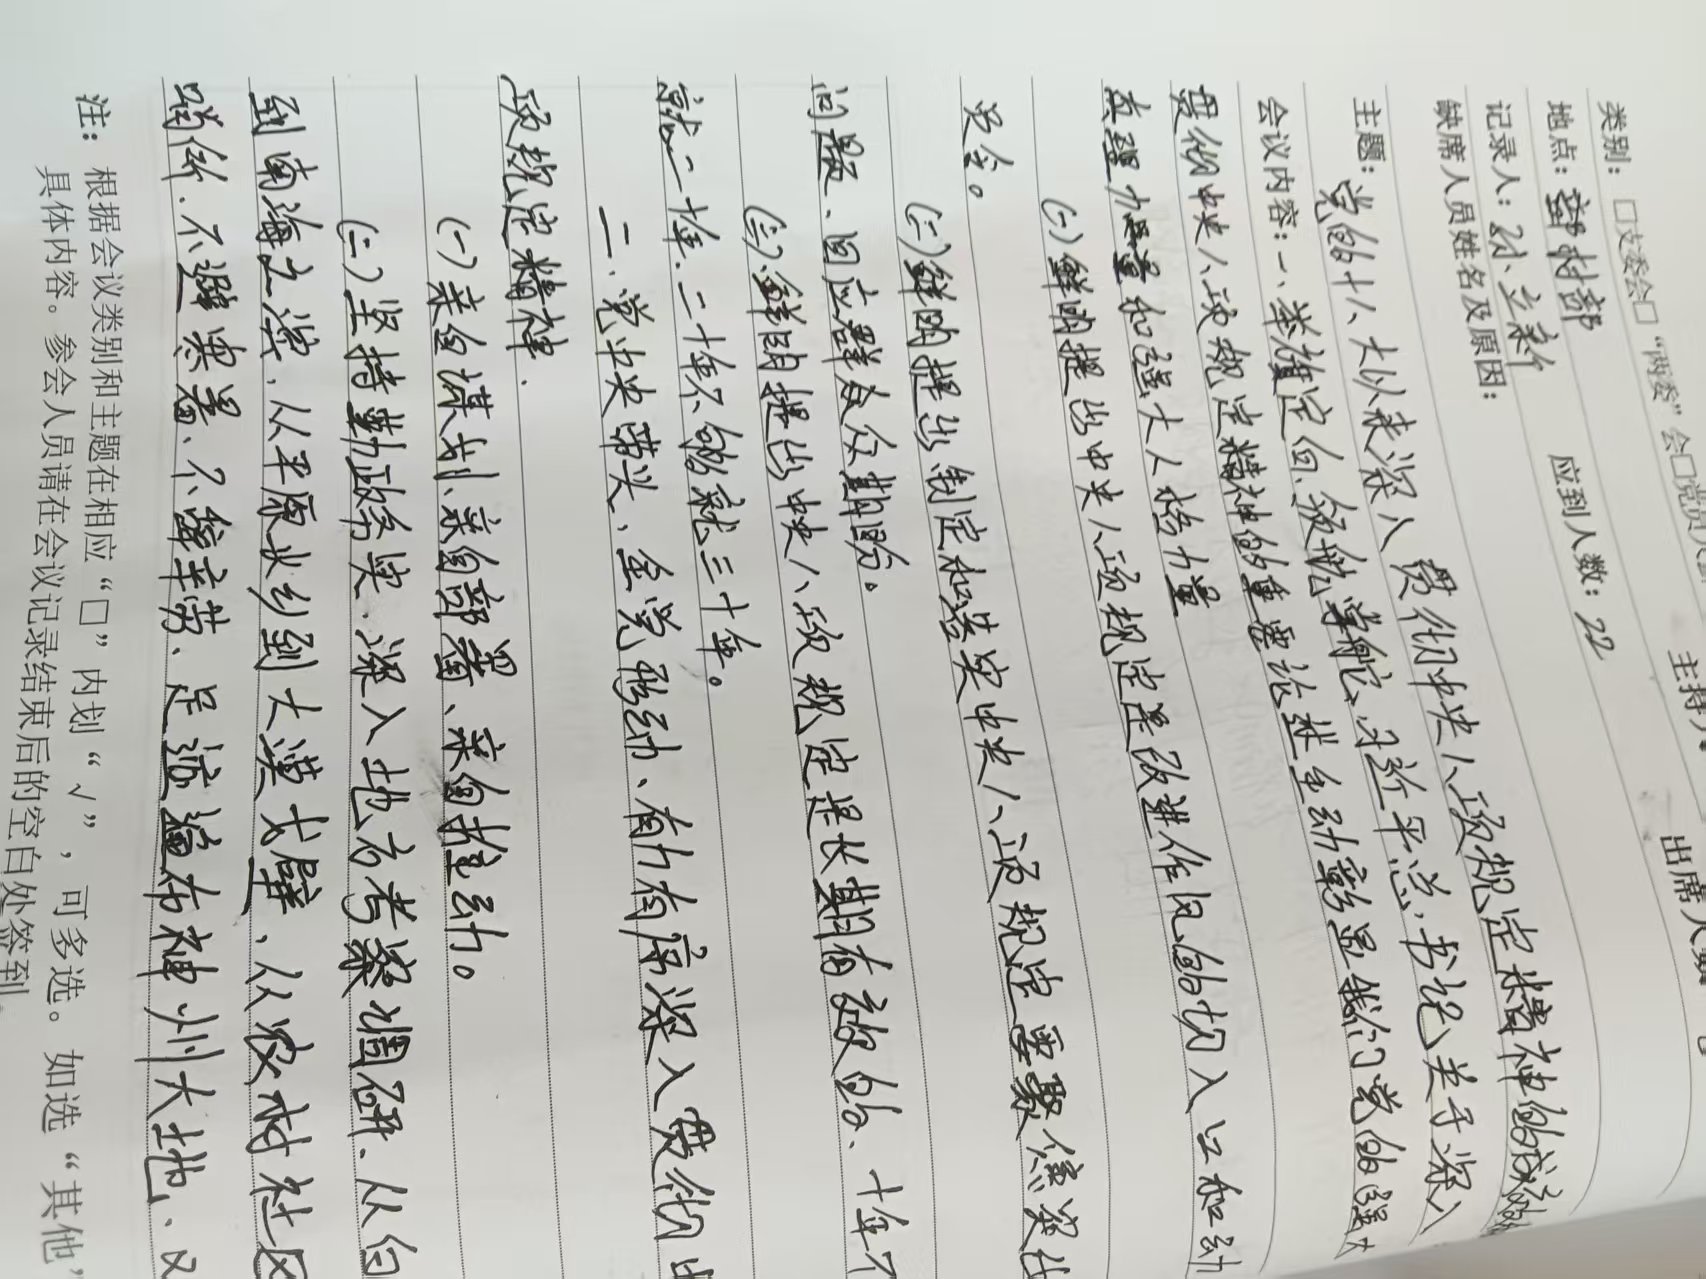 类别：□支委会□“两委”会□党员大会
地点：部 主持人
记录人：孙立新 应到人数：22 出席人数
缺席人员姓名及原因：
主题：党的十八大以来深入贯彻中央八项规定精神的成效
会议内容：一、举旗定向、领航掌舵，习近平总书记关于深入
贯彻中央八项规定精神的重要论述生动彰显我们党的强大
真理力量和强大人格力量
(一)鲜明提出中央八项规定是改进作风的切入口和动
员令。
(二)鲜明提出制定和落实中央八项规定要聚焦突出
问题、回应群众期盼。
(三)鲜明提出中央八项规定是长期有效的、十年不
就二十年、二十年不够就三十年。
二、党中央带头、全党行动、有力有序深入贯彻中
项规定精神、
(一)亲自谋划、亲自部署、亲自推动。
(二)坚持勤政务实、深入地方考察调研、从白
到南海之滨、从平原水乡到大漠戈壁、从农村社区
哨所、不避寒暑、不辞辛劳、足迹遍布神州大地、又
注：根据会议类别和主题在相应“□”内划“√”，可多选。如选“其他”
具体内容。参会人员请在会议记录结束后的空白处签到。